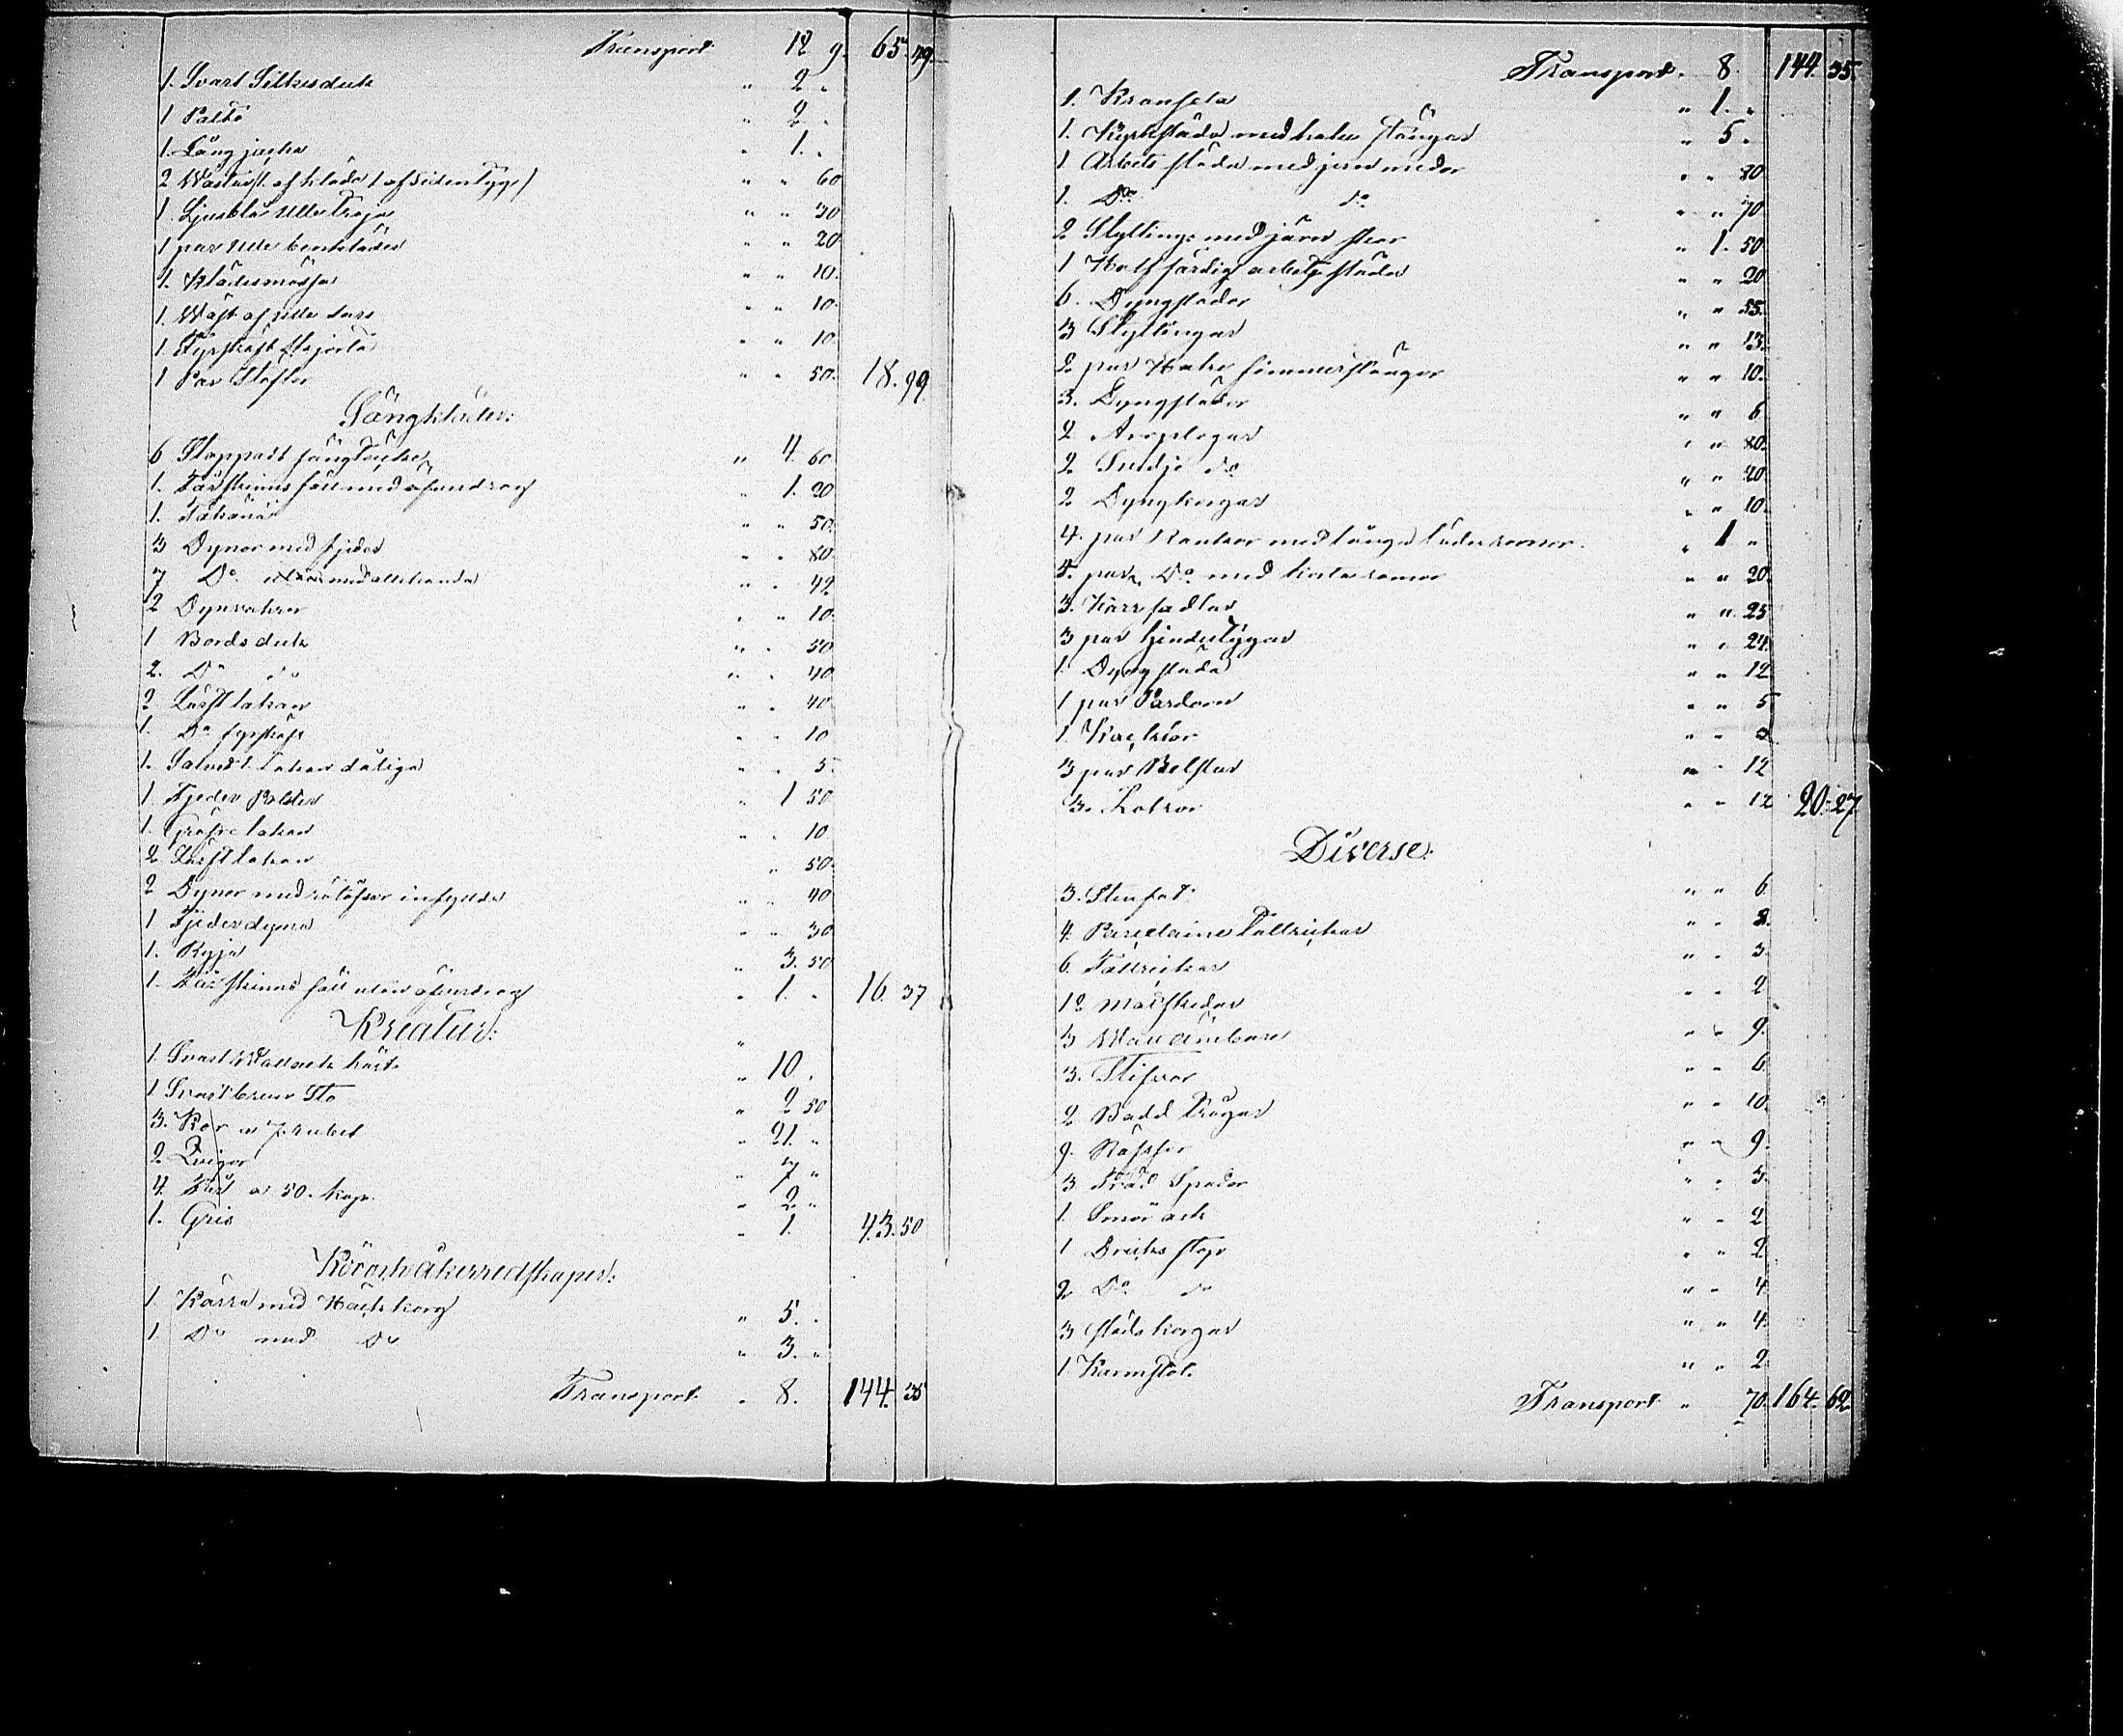 Transport 12 9. 65. 49.
1. Svart Silkesduk " 2 "
1 Paltå " 2 "
1. Lång jacka " 1. "
2 Västar /1. af kläde 1 af Sidentyg/ " " 60
1. Ljusblå Ulle Tröja " " 30
1 par Ulle benkläder " " 20
1. Klädesmössa " " 10.
1. Wäst af ulle " " 10.
1. Fyrskaft Skjorta " " 10
1 Par Stöflor " " 50. 18. 99.
Sängkläder:
6 Stoppade sängtäcke " 4. 60
1. Fårskinns fäll med öfverdrag " 1. 20
1. " " 50.
3 Dynor med fjäder " " 80.
7 Do med allehanda " " 42
2 Dynvahrar " " 10.
1 Bordsduk " " 50
2. Do do " " 40
2 Lärft lakan " " 40
1. Do fyrskaft " " 10
1. lakan dåliga " " 5.
1. Fjeder Bolster " 1 50
1. Gröfre lakan " " 10
2 Lärft lakan " " 50.
2 Dynor med infyllda " " 40
1 Fjederdyna " " 30
1. Ryja " 3. 50
1. Fårskinns fäll utan öfverdrag " 1. " 16. 37
Kreatur:
1. Svart Wallack häst " 10. "
1 Svartbrun Sto " 2 50
3. Kor a 7. rubel " 21. "
2 Qvigor " 7 "
4. Får a 50. kop. " 2 "
1. Gris " 1. 43. 50
Kör och åkerredskaper:
1. Kärra med Häckkorg " 5. "
1 Do med Do " 3. "
Transport " 8. 144. 35
Transport. 8. 144. 35.
1. " 1. "
1. Kyrksläda med stänger " 5 "
1 Arbets släda med jern medar " " 80
1. Do do " " 70
2 Skyttings med järn " 1. 50
1 Half färdig arbets släda " " 20
6. Dyngslädor " " 55.
3 Skyttingar " " 13.
2 par timmerstänger " " 10.
3. Dyngslädor " " 6
2 Årplogar " " 80.
2 do " " 20.
2 Dyngkorgar " " 10.
4. par med långa läderremmar. " 1 "
5. par Do med korta remmar " " 20.
3. Kärrsadlar " " 25
3 par " " 24.
1. Dyngsläda " " 12
1 par " " 5
1. " "
3 par " " 12
3. " " 12 20. 27
Diverse:
3. Stenfat. " " 6
4. Porcelaine Tallrickar " " 8.
6. Tallrickar " " 3.
12 Matskedar " " 2
3 " " 9.
3. " " 6.
2 Badd Trågar " " 10.
9. Räfsor " " 9.
3 Träd Spador " " 3.
1. Smör ask " " 2
1 Dricks stop " " 2
2. Do do " " 4.
3 korgar " " 4.
1. Karmstol. " " 2
Transport " 70. 164. 62.